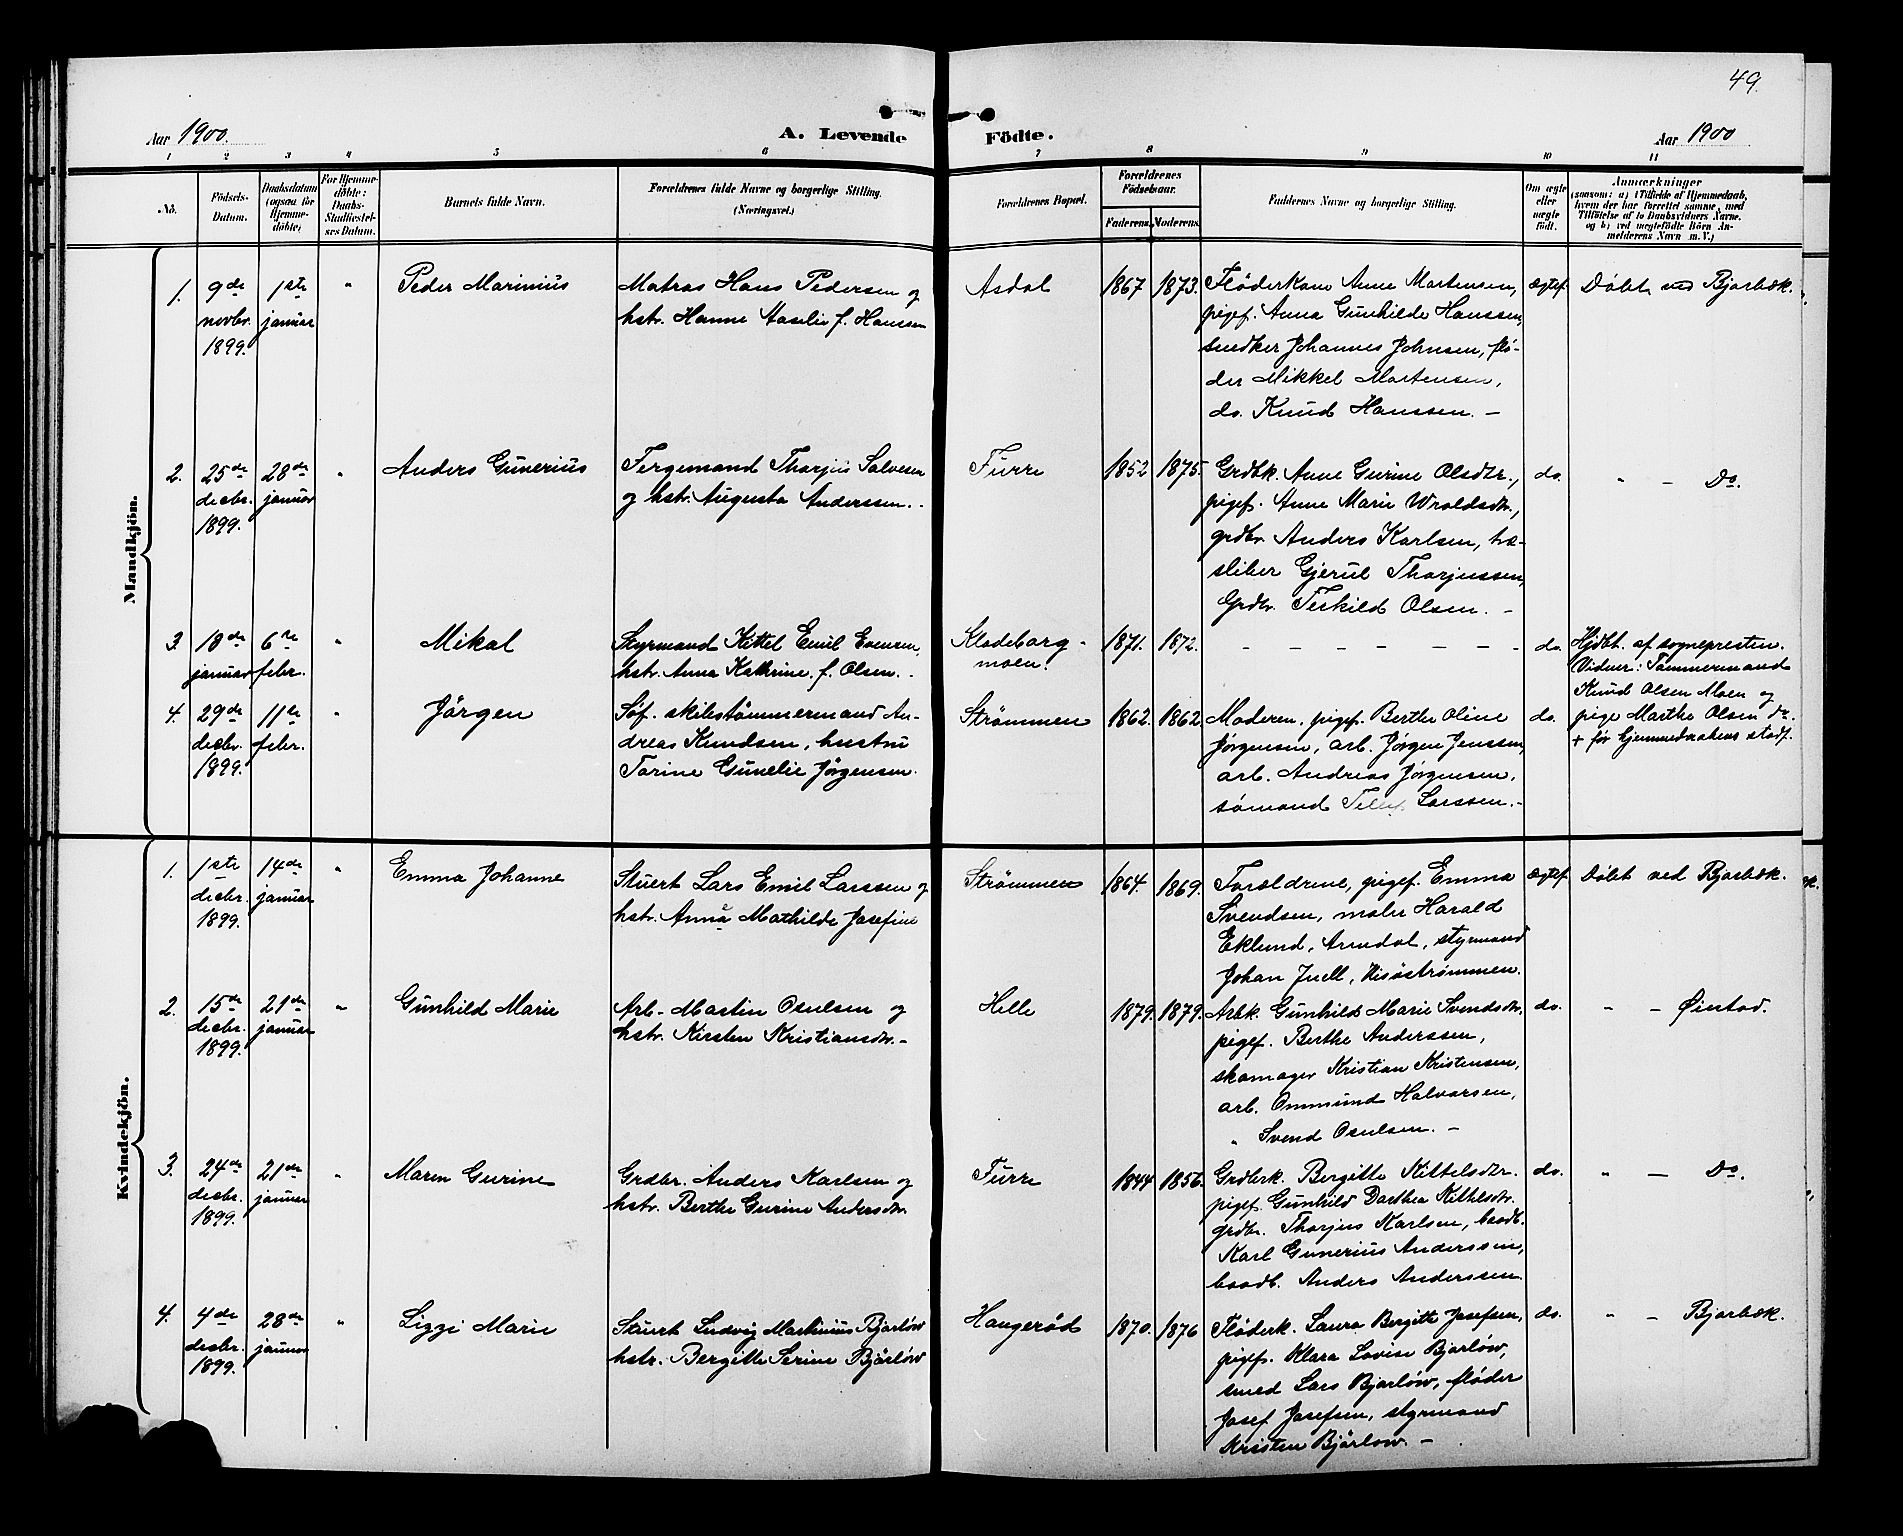 49.
Aar 1900.
A. Levende
Födte.
Aar 1900
1 2 3 4 5 6 7 8 9 10 11
No.
Födsels-
Datum.
Daabsdatum
(ogsaa for
Hjemme-
döbte)
For Hjemme-
döbte:
Daabs-
Stadfæstel-
ses Datum.
Barnets fulde Navn.
Forældrenes fulde Navne og borgerlige Stilling.
(Næringsvei.)
Forældrenes Bopæl.
Forældrenes
Födselsaar.
Faderens. Moderens.
Faddernes Navne og borgerlige Stilling.
Om ægte
eller
uægte
født.
Anmærkninger
(saasom: a) i Tilfælde af Hjemmedaab,
hvem der har forrettet samme, med
Tilföielse af to Daabsvidners Navne.
og b) ved uægtefödte Börn An-
melderens Navn m. V.)
Mandkjön.
1.
9de
novbr.
1899.
1ste
januar
"
Peder Marinius
Matros Hans Pedersen og
hstr. Hanne Aaselie f. Hanssen
Asdal
1867
1873.
Fløderkone Anne Mortensen,
pigef. Anna Gunhilde Hanssen,
snedker Johannes Johnsen, flø-
der Mikkel Mortensen,
do. Knud Hanssen. –
ægtef.
Döbt ved Bjorbæk.
2.
25de
decbr.
1899.
28de
januar
"
Anders Gunerius
Fergemand Thorjus Salvesen
og hstr. Augusta Anderssen.
Furre
1852
1875.
Grdbk. Anne Gurine Olsdtr.,
pigef. Anne Marie Wroldsdtr.,
grdbr. Anders Karlsen, træ-
sliber Gjerul Thorjussen,
Grdbr. Terkild Olsen. –
do.
" – Do.
3.
18de
januar
6te
febr.
"
Mikal
Styrmand Kittel Emil Evensen,
hstr. Anna Kathrine f. Olsen.
Klodeborg-
moen.
1871.
1872.
– – – – – – –
do.
Hjdbt. af sognepresten.
Vidner: Tømmermand
Knud Olsen Moen og
pige Marthe Olsen do.
+ før hjemmedaabens stadf.
4.
29de
decbr.
1899.
11te
febr.
"
Jörgen
Søf. skibstömmermand An-
dreas Knudsen, hustru
Torine Gunelie Jørgensen.
Strömmen
1862.
1862.
Moderen, pigef. Berthe Oline
Jørgensen, arb. Jørgen Jenssen,
arb. Andreas Jørgensen,
sømand Tellef Larssen. –
do.
Kvindekjön.
1.
1ste
decbr.
1899.
14de
januar
"
Emma Johanne
Stuert Lars Emil Larssen og
hstr. Anna Mathilde Josefine
Strömmen
1864.
1869.
Forældrene, pigef. Emma
Svendsen, maler Harald
Eklund, Arendal, styrmand
Johan Juell, Hisöströmmen.
ægtef.
Döbt ved Bjorbæk.
2.
15de
decbr.
1899.
21de
januar
"
Gunhild Marie
Arb. Martin Osulsen og
hstr. Kirsten Kristiansdtr. –
Helle
1879.
1879.
Arbk. Gunhild Marie Svendsdtr.
pigef. Berthe Anderssen,
skomager Kristian Kristensen,
arb. Ommund Halvorsen,
" Svend Osulsen. –
do.
" – Øiestad.
3.
24de
decbr.
1899.
21de
januar
"
Maren Gurine
Grdbr. Anders Karlsen og
hstr. Berthe Gurine Andersdtr.
Furre
1844
1856.
Grdbrk. Bergitte Kittelsdtr.
pigef. Gunhild Dorthea Kittelsdtr.
grdbr. Thorjus Karlsen, baadb.
Karl Gunerius Anderssen,
baadb. Anders Anderssen.
do.
" – Do.
4.
4de
decbr.
1899.
28de
januar
"
Lizzi Marie
Stuert Ludvig Martinius Bjorløw
hstr. Bergitte Serine Bjørløw
Haugeröd
1870.
1876
Fløderk. Laura Bergitte Josefsen,
pigef. Klara Lovise Bjorløw,
smed Lars Bjorløw, fløder
Josef Josefsen, styrmand
Kristen Bjørløw. –
do.
" – Bjorbæk.